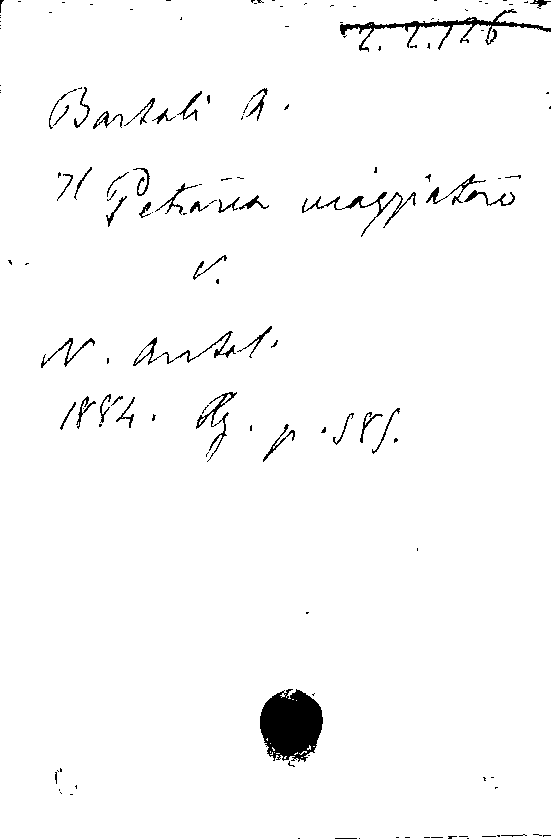 2. 2.126
Bartoli A.
Il Petrarca viaggiatore
v.
N. Antol.
1884. Ag. p. 585.